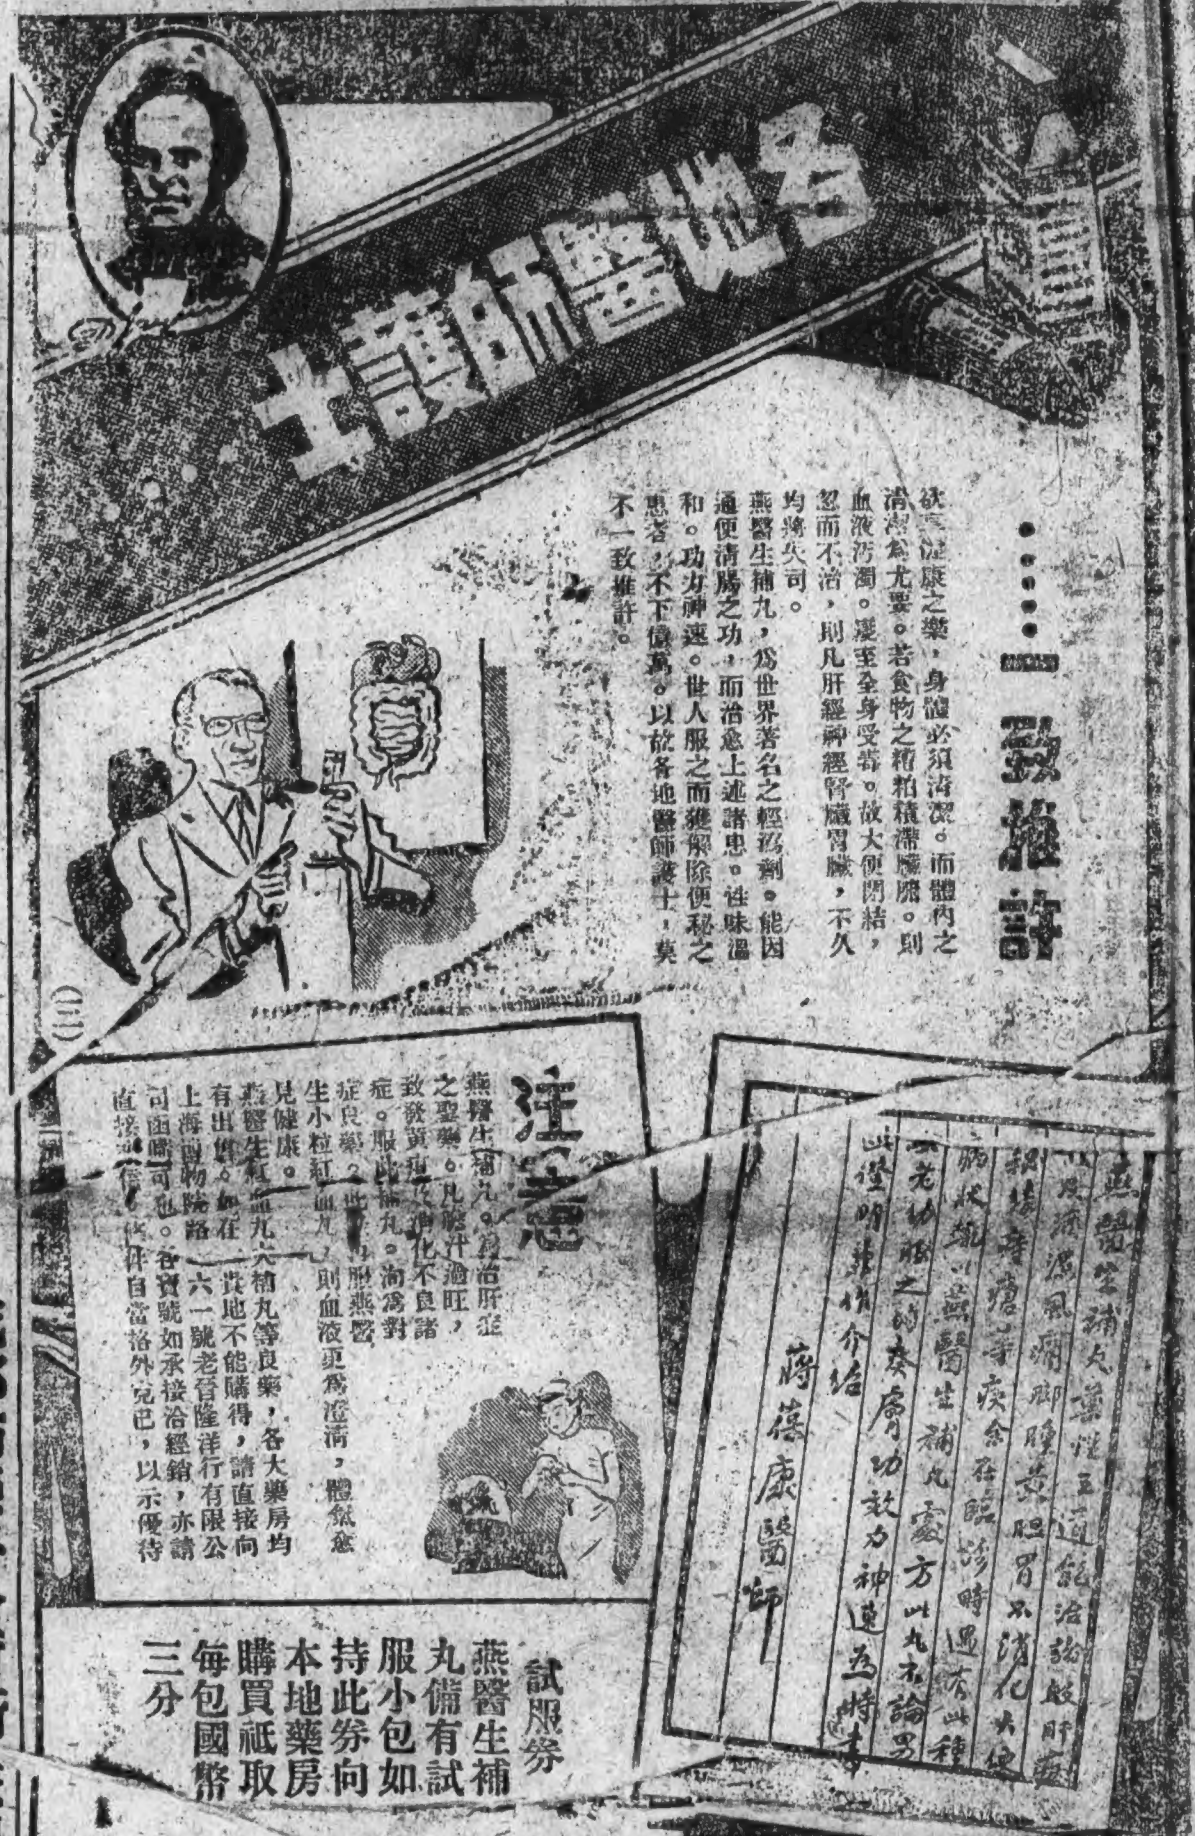 各地醫師護士
一致推許
欲享健康之樂，身體必須清潔。而體內之
清潔爲尤要。若食物之糟粕積滯臟腑。則
血液汚濁。濅至全身受害。故大便閉結，
忽而不治，則凡肝經神經腎臟胃臟，不久
均將失司。
燕醫生補丸，爲世界著名之輕瀉劑。能因
通便淸腸之功，而治愈上述諸患。性味溫
和。功力神速。世人服之而獲解除便秘之
患者，不下億萬。以故各地醫師護士，莫
不一致推許。
燕醫生補丸藥性王道能治
濕風濕脚腫黃胆胃不消化大便
積等疾余在臨診時遇有此種
病狀輒以燕醫生補丸處方此丸不論男
老幼服之的奏膚功效力神速爲特書
此證明並作介紹
蔣葆康醫師
注意
燕醫生補丸。爲治肝症
之聖藥。凡膽汁過旺，
致發黃疸及消化不良諸
症。服此補丸。洵爲對
症良藥。再服燕醫
生小粒紅血丸，則血液更爲澄淸，體氣愈
見健康。
燕醫生紅血丸大補丸等良藥，各大藥房均
有出售。如在貴地不能購得，請直接向
上海博物院路六一號老晉隆洋行有限公
司函購可也。各寶號如承接洽經銷，亦請
直接自當格外克已，以示優待
(三二)
試服券
燕醫生補
丸備有試
服小包如
持此券向
本地藥房
購買祗取
每包國幣
三分